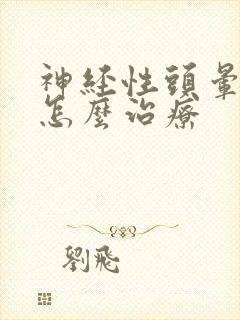 神経性頭暈
怎麼治療
劉飛